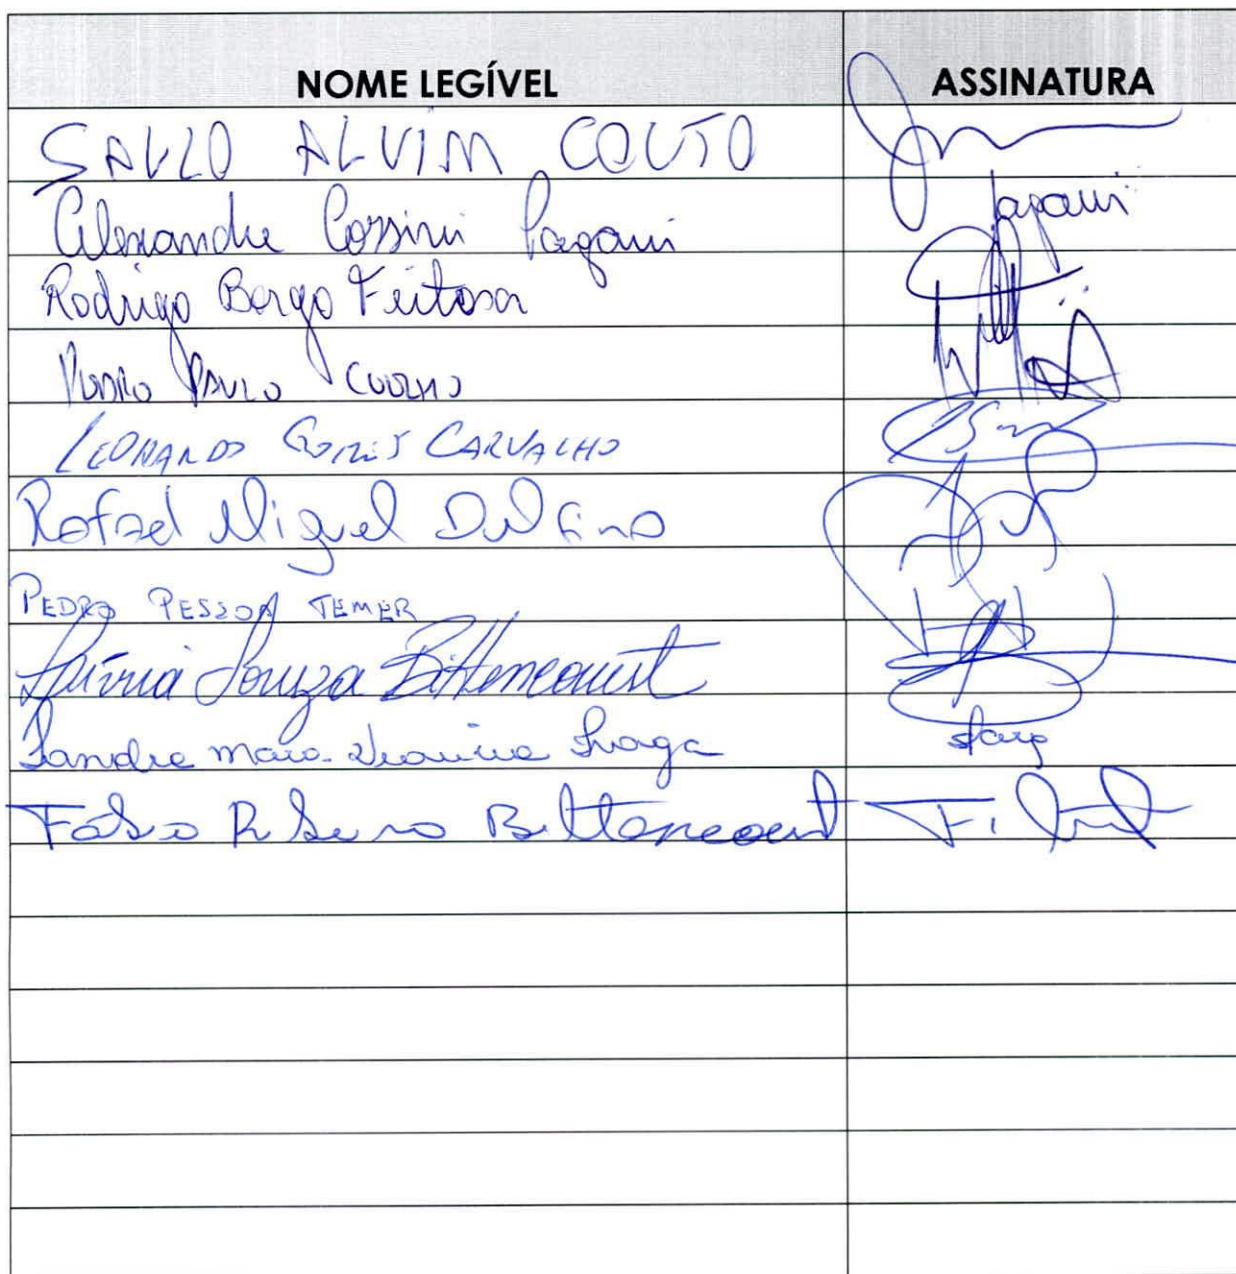 NOME LEGÍVEL ASSINATURA
SAULO ALVIM COUTO
Alexandre Cossini Pagani Pagani
Rodrigo Borgo Feitosa
PEDRO PAULO COELHO
LEONARDO GOMES CARVALHO
Rafael Miguel Delfino
PEDRO PESSOA TEMER
Souza Bittencourt
Sandra Fraga
Fábio Ribeiro Bittencourt